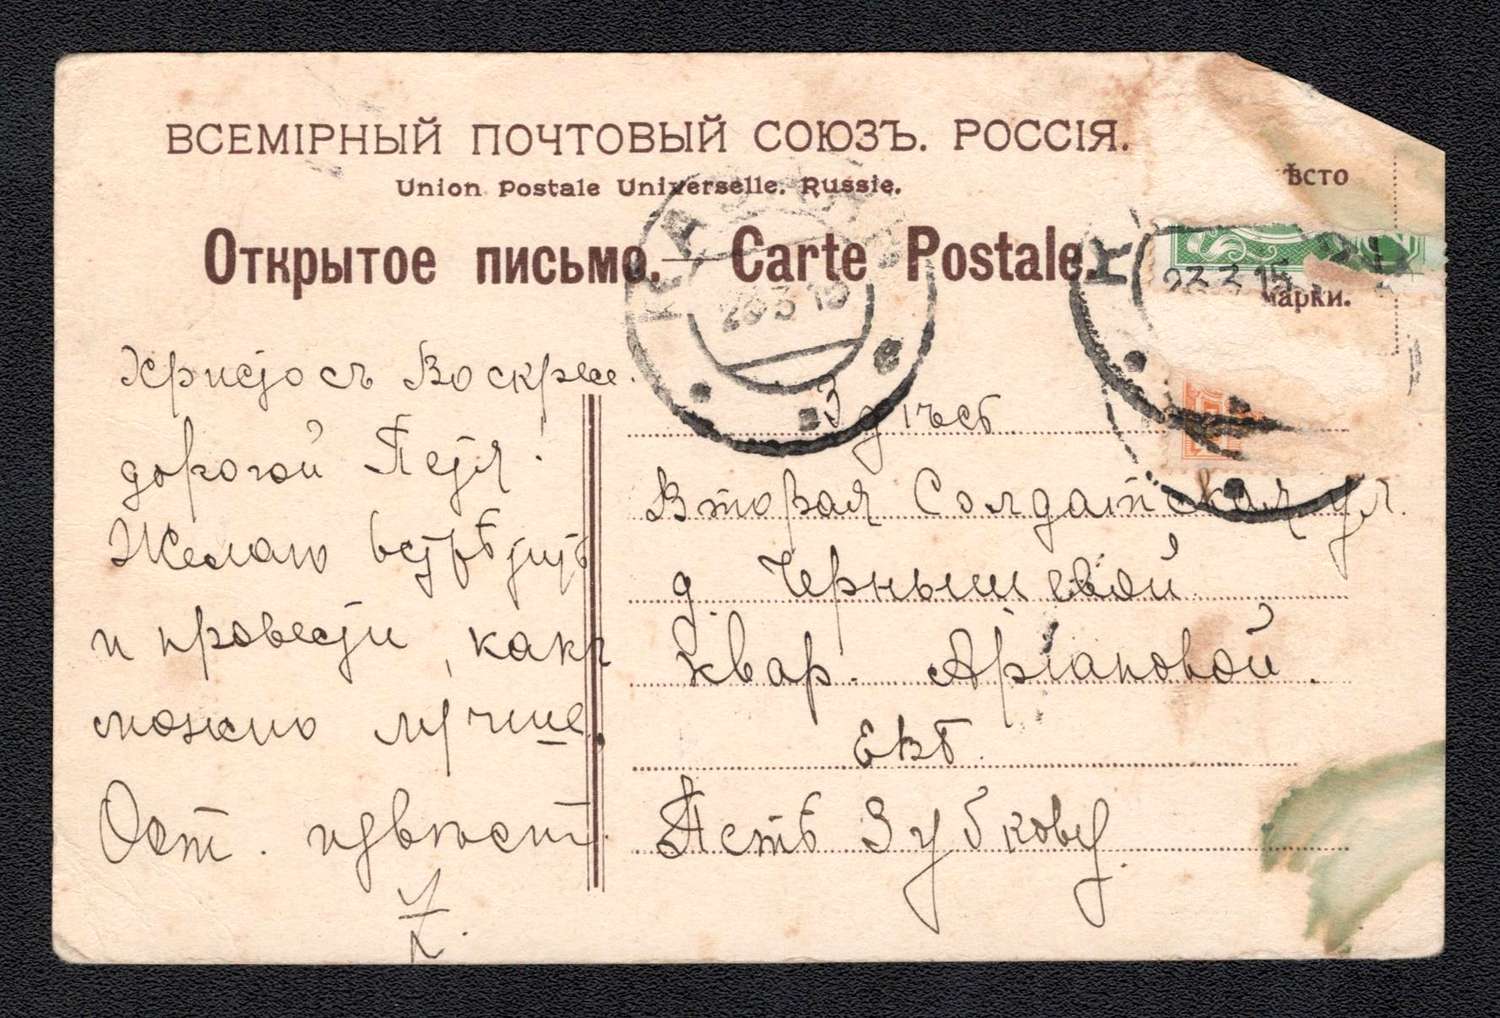 ВСЕМІРНЫЙ ПОЧТОВЫЙ СОЮЗЪ. РОССІЯ.
Union Postale Universelle. Russie.
Открытое письмо. — Carte Postale.
ѣсто
марки.
23 3 15
Христосъ Воскресе.
дорогой Петя!
Желаю встрѣтить
и провести, какъ
можно лучше.
Ост. извѣст
Здѣсь.
Вторая Солдатская ул.
д. Чернышевой
квар.
Екб.
Петѣ Зубкову.